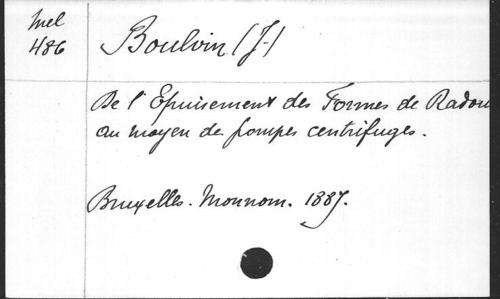 Mel
486
Boulvin (J.)
De l'Epuisement des Formes de Radou
au moyen de pompes centrifuges.
Bruxelles. Monnom. 1887.